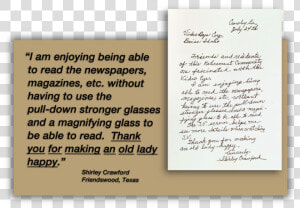 "I am enjoying being able
to read the newspapers,
magazines, etc. without
having to use the
pull-down stronger glasses
and a magnifying glass to
be able to read. Thank
you for making an old lady
happy."
Shirley Crawford
Friendswood, Texas
July 29th
Friends and residents
of this Retirement Community
are fascinated with the
I am enjoying being
able to read the newspapers,
magazines, etc. without
having to use the pull-down
stronger glasses
glass to be able to read.
Thank you for making
an old lady happy.
Shirley Crawford